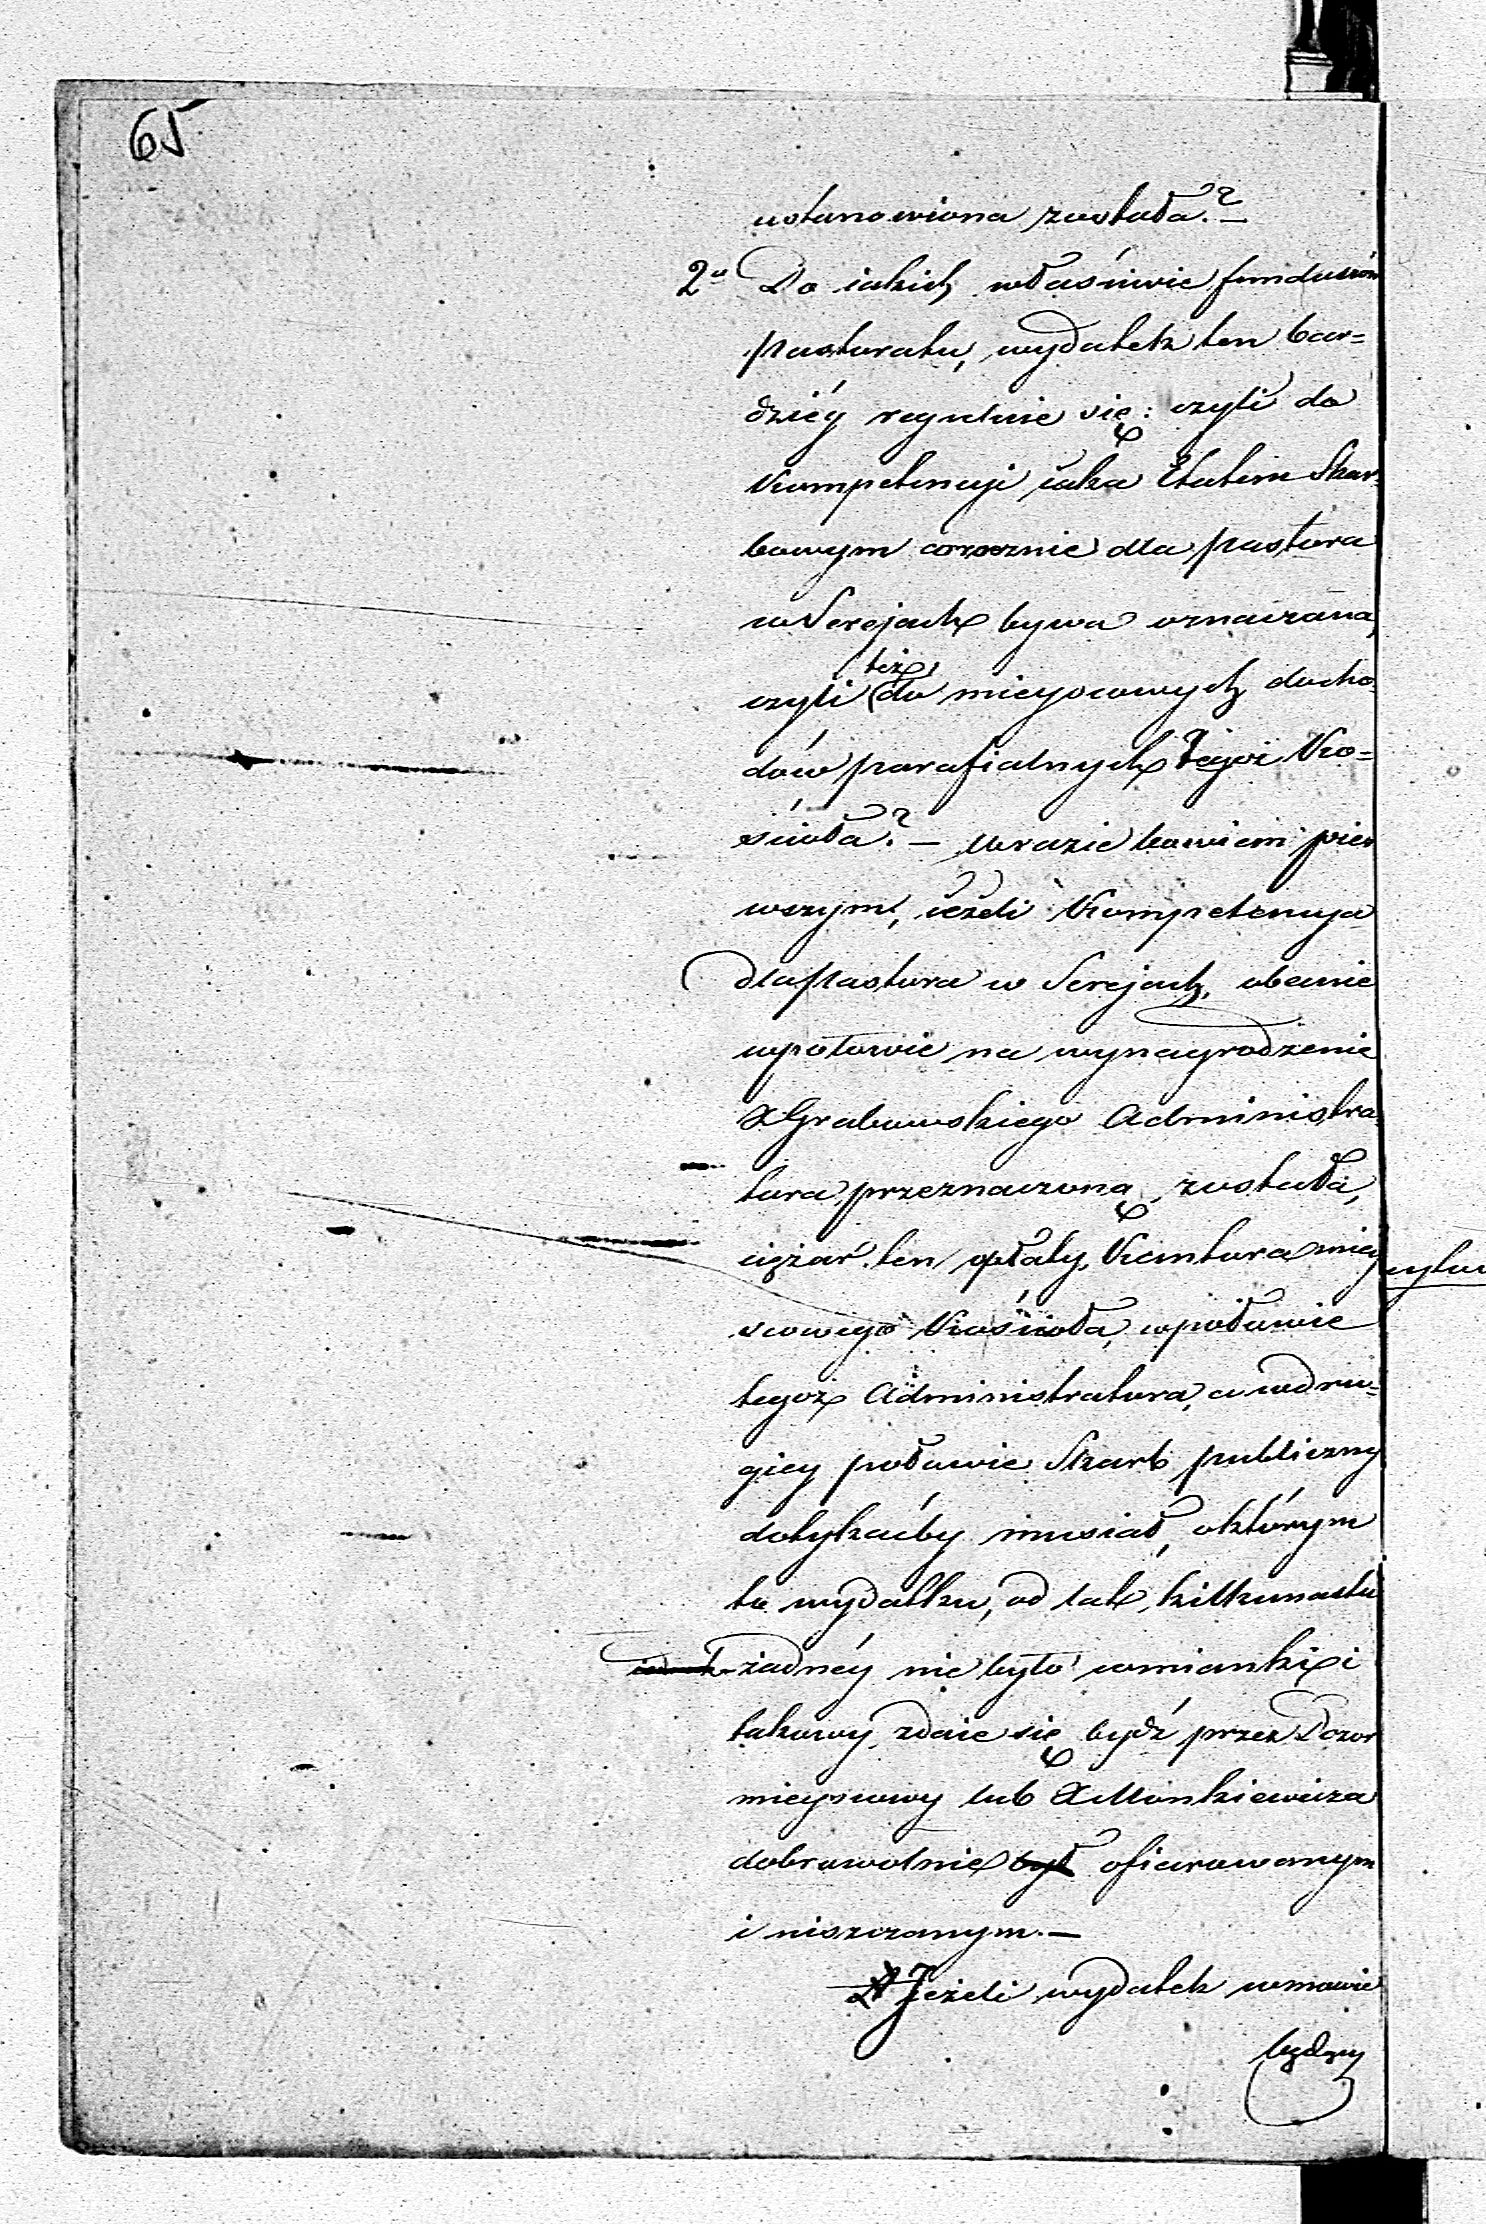 65
ustanowiona została?—
2o Do iakich właściwie funduszów
pastoratu, wydatek ten bar=
dziéy reguluie się: czyli do
Kompetencyi iaka Etatem Skar=
bowym corocznie dla pastora
w Serejach bywa oznaczana,
też
czyli do mieyscowych docho=
dów parafialnych tegoż Ko=
ścioła?— W razie bowiem pier
wszym, ieżeli Kompetencya
dla Pastora w Serejach, obecnie
w połowie na wynagrodzenie
X Grabowskiego Administra=
tora, przeznaczoną została,
ciężar ten opłaty Kantora miey
scowego Kościoła, w połowie
tegoż Administratora, a w dru=
giey połowie Skarb publiczny
dotykaćby musiał, o którym
to wydatku, od lat kilkunastu
żadnéy nie było wzmianki i
takowy zdaie się bydź przez Dozor
mieyscowy lub X Monkiewicza
dobrowolnie był ofiarowanym
i niszczonym.—
Jeżeli wydatek w mowie
będący